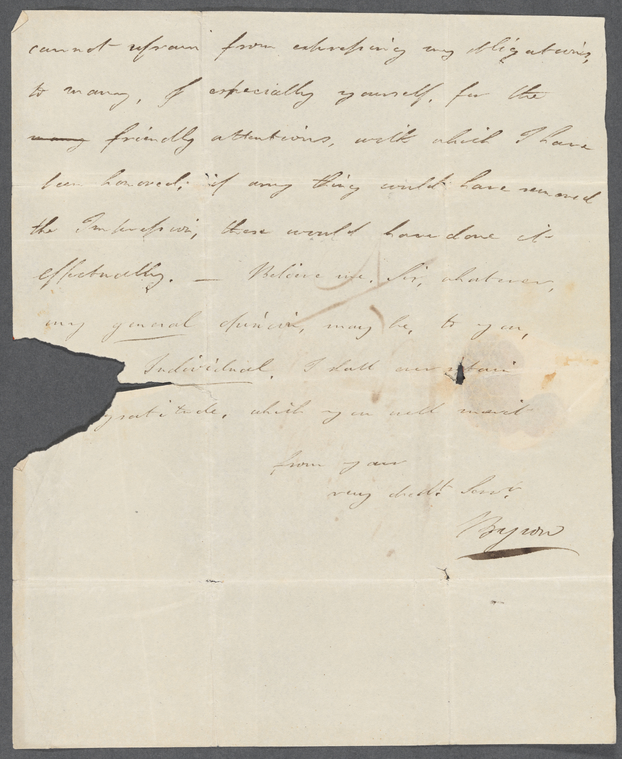 cannot refrain from expressing my obligations,
to many, & especially yourself, for the
many friendly attentions, with which I have
been honored; if any thing could have removed
the Impression, these would have done it
effectually. — Believe me, Sir, whatever,
my general opinion, may be, to you,
Individual, I shall ever retain
gratitude, which you well merit
from your
very obedt. Servt.
Byron